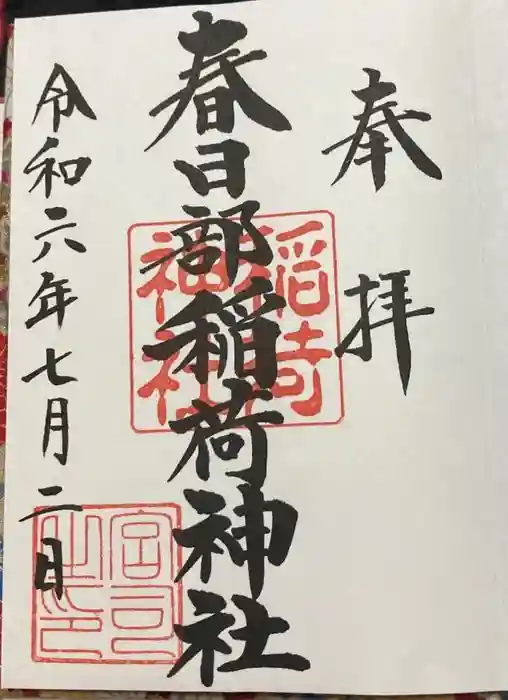 奉拝
春日部稲荷神社
令和六年七月二日
稲荷
神社
宮司
之印